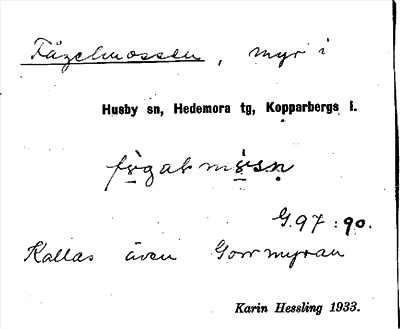 Fågelmossen, myr i
Husby sn, Hedemora tg, Kopparbergs l.
G.97:90.
Kallas även Gorrmyran
Karin Hessling 1933.